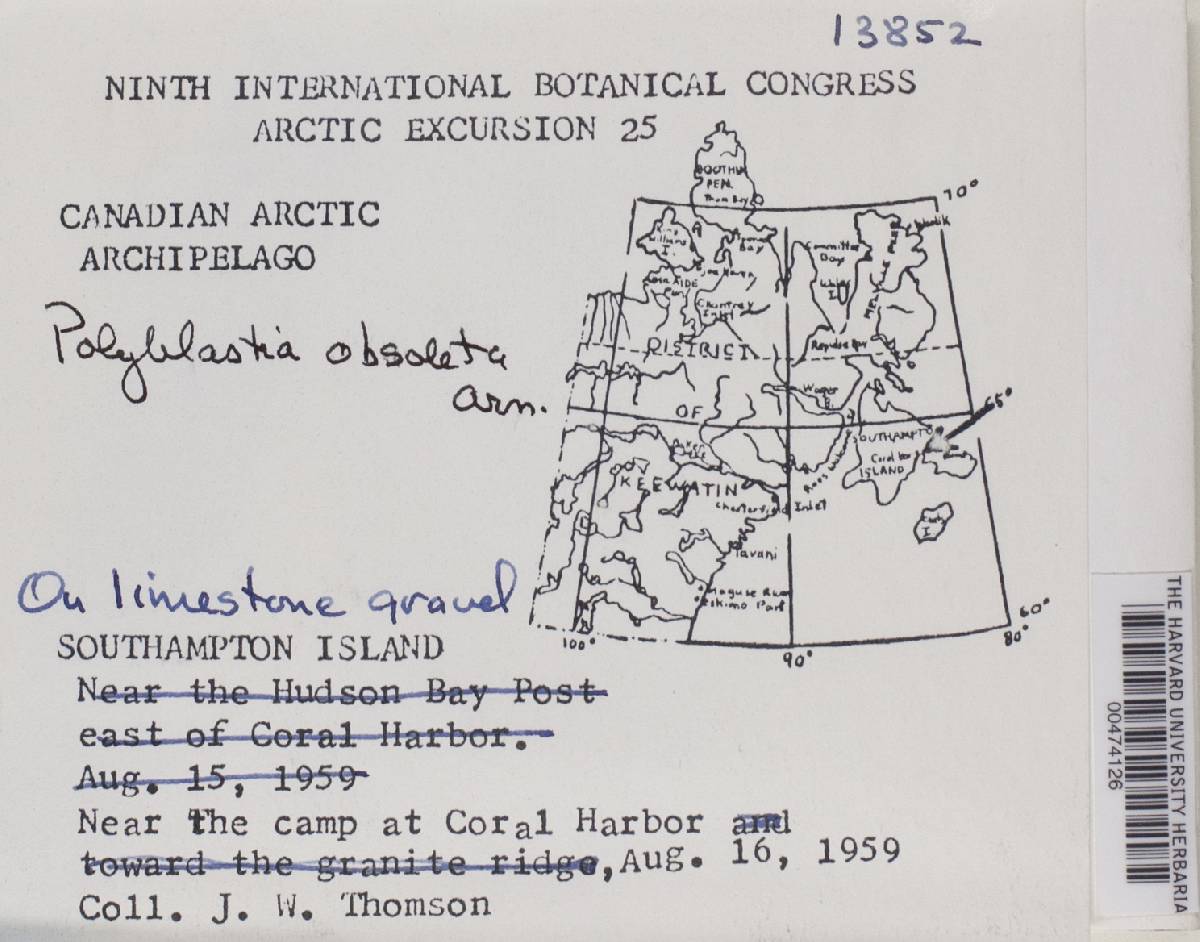 13852
NINTH INTERNATIONAL BOTANICAL CONGRESS
ARCTIC EXCURSION 25
CANADIAN ARCTIC
ARCHIPELAGO
Polyblastia obsoleta
Arn.
BOOTHIA
PEN.
70°
Committee
Bay
Chantrey
Inlet
DISTRICT
Repulse Bay
Wager
B.
OF
65°
SOUTHAMPTON
ISLAND
KEEWATIN
Chesterfield Inlet
Tavani
Maguse River
Eskimo Point
100°
90°
80°
60°
On limestone gravel
SOUTHAMPTON ISLAND
Near the Hudson Bay Post
east of Coral Harbor.
Aug. 15, 1959
Near the camp at Coral Harbor and
toward the granite ridge, Aug. 16, 1959
Coll. J. W. Thomson
THE HARVARD UNIVERSITY HERBARIA
00474126